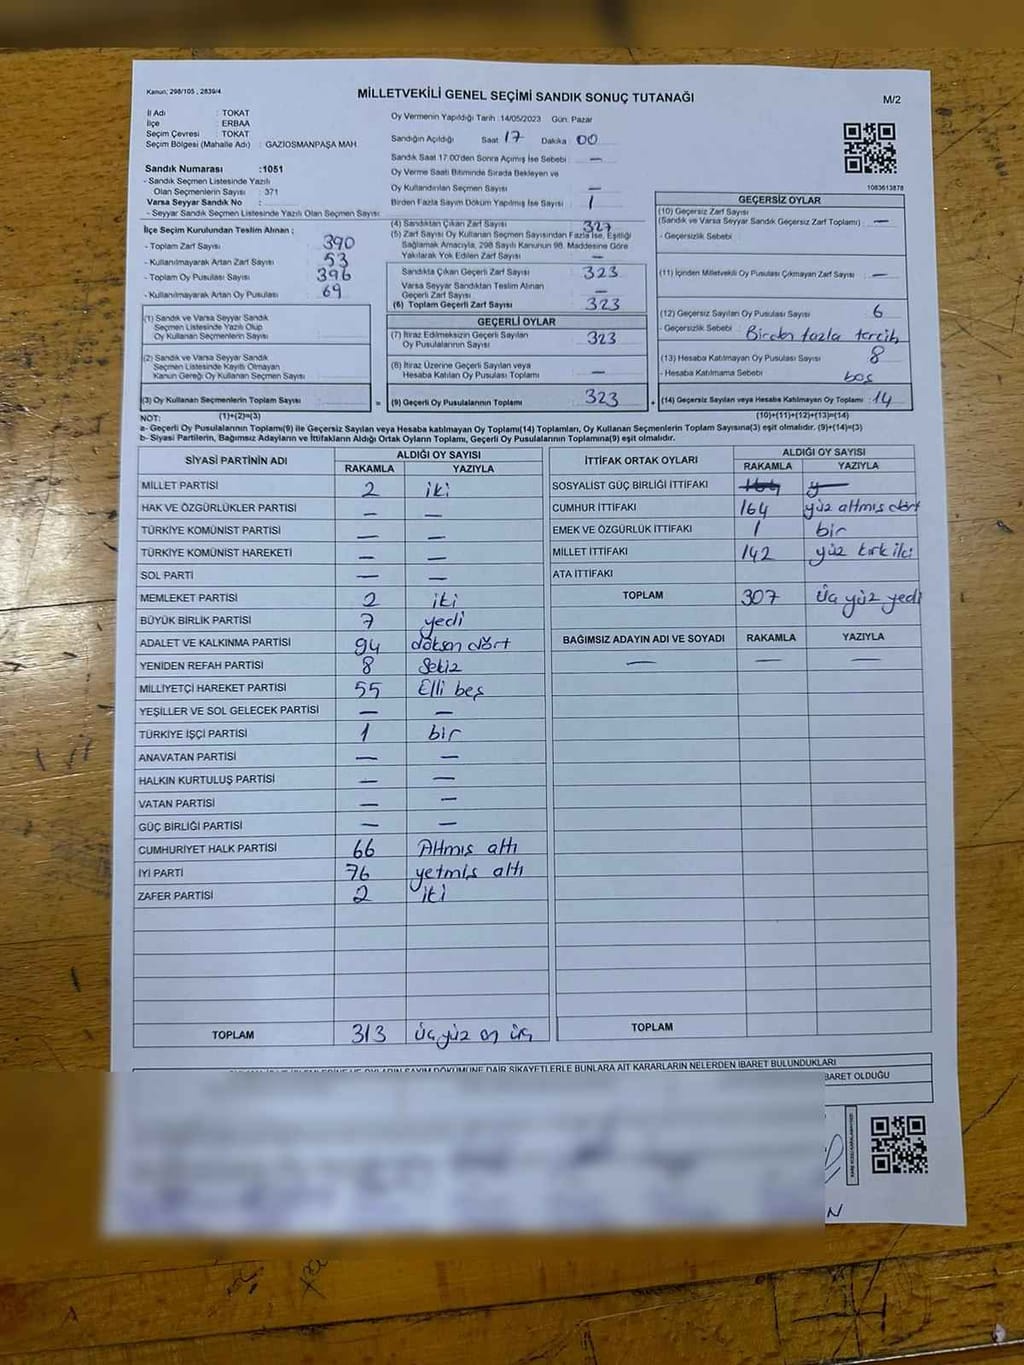 Kanun; 298/105 , 2839/4
MİLLETVEKİLİ GENEL SEÇİMİ SANDIK SONUÇ TUTANAĞI
M/2
İl Adı : TOKAT
İlçe : ERBAA
Seçim Çevresi : TOKAT
Seçim Bölgesi (Mahalle Adı) : GAZİOSMANPAŞA MAH.
Sandık Numarası :1051
- Sandık Seçmen Listesinde Yazılı
Olan Seçmenlerin Sayısı : 371
Varsa Seyyar Sandık No :
- Seyyar Sandık Seçmen Listesinde Yazılı Olan Seçmen Sayısı:
Oy Vermenin Yapıldığı Tarih : 14/05/2023 Gün: Pazar
Sandığın Açıldığı Saat 17 Dakika 00
Sandık Saat 17:00'den Sonra Açılmış İse Sebebi : —
Oy Verme Saati Bitiminde Sırada Bekleyen ve
Oy Kullandırılan Seçmen Sayısı : —
Birden Fazla Sayım Döküm Yapılmış İse Sayısı : 1
1083613878
İlçe Seçim Kurulundan Teslim Alınan ;
- Toplam Zarf Sayısı : 390
- Kullanılmayarak Artan Zarf Sayısı : 53
- Toplam Oy Pusulası Sayısı : 396
- Kullanılmayarak Artan Oy Pusulası : 69
(1) Sandık ve Varsa Seyyar Sandık
Seçmen Listesinde Yazılı Olup
Oy Kullanan Seçmenlerin Sayısı :
(2) Sandık ve Varsa Seyyar Sandık
Seçmen Listesinde Kayıtlı Olmayan
Kanun Gereği Oy Kullanan Seçmen Sayısı :
(3) Oy Kullanan Seçmenlerin Toplam Sayısı :
(1)+(2)=(3)
(4) Sandıktan Çıkan Zarf Sayısı : 327
(5) Zarf Sayısı Oy Kullanan Seçmen Sayısından Fazla İse, Eşitliği
Sağlamak Amacıyla, 298 Sayılı Kanunun 98. Maddesine Göre
Yakılarak Yok Edilen Zarf Sayısı : —
Sandıkta Çıkan Geçerli Zarf Sayısı : 323
Varsa Seyyar Sandıktan Teslim Alınan
Geçerli Zarf Sayısı : —
(6) Toplam Geçerli Zarf Sayısı : 323
GEÇERLİ OYLAR
(7) İtiraz Edilmeksizin Geçerli Sayılan
Oy Pusulalarının Sayısı : 323
(8) İtiraz Üzerine Geçerli Sayılan veya
Hesaba Katılan Oy Pusulası Toplamı : —
= (9) Geçerli Oy Pusulalarının Toplamı : 323 +
GEÇERSİZ OYLAR
(10) Geçersiz Zarf Sayısı
(Sandık ve Varsa Seyyar Sandık Geçersiz Zarf Toplamı) : —
- Geçersizlik Sebebi :
(11) İçinden Milletvekili Oy Pusulası Çıkmayan Zarf Sayısı : —
(12) Geçersiz Sayılan Oy Pusulası Sayısı : 6
- Geçersizlik Sebebi : Birden fazla tercih
(13) Hesaba Katılmayan Oy Pusulası Sayısı : 8
- Hesaba Katılmama Sebebi : boş
(14) Geçersiz Sayılan veya Hesaba Katılmayan Oy Toplamı : 14
(10)+(11)+(12)+(13)=(14)
NOT:
a- Geçerli Oy Pusulalarının Toplamı(9) ile Geçersiz Sayılan veya Hesaba katılmayan Oy Toplamı(14) Toplamları, Oy Kullanan Seçmenlerin Toplam Sayısına(3) eşit olmalıdır. (9)+(14)=(3)
b- Siyasi Partilerin, Bağımsız Adayların ve İttifakların Aldığı Ortak Oyların Toplamı, Geçerli Oy Pusulalarının Toplamına(9) eşit olmalıdır.
SİYASİ PARTİNİN ADI ALDIĞI OY SAYISI
RAKAMLA YAZIYLA
MİLLET PARTİSİ 2 iki
HAK VE ÖZGÜRLÜKLER PARTİSİ — —
TÜRKİYE KOMÜNİST PARTİSİ — —
TÜRKİYE KOMÜNİST HAREKETİ — —
SOL PARTİ — —
MEMLEKET PARTİSİ 2 iki
BÜYÜK BİRLİK PARTİSİ 7 yedi
ADALET VE KALKINMA PARTİSİ 94 doksan dört
YENİDEN REFAH PARTİSİ 8 Sekiz
MİLLİYETÇİ HAREKET PARTİSİ 55 Elli beş
YEŞİLLER VE SOL GELECEK PARTİSİ — —
TÜRKİYE İŞÇİ PARTİSİ 1 bir
ANAVATAN PARTİSİ — —
HALKIN KURTULUŞ PARTİSİ — —
VATAN PARTİSİ — —
GÜÇ BİRLİĞİ PARTİSİ — —
CUMHURİYET HALK PARTİSİ 66 Altmış altı
İYİ PARTİ 76 yetmiş altı
ZAFER PARTİSİ 2 iki
TOPLAM 313 Üç yüz on üç
İTTİFAK ORTAK OYLARI ALDIĞI OY SAYISI
RAKAMLA YAZIYLA
SOSYALİST GÜÇ BİRLİĞİ İTTİFAKI
CUMHUR İTTİFAKI 164 yüz altmış dört
EMEK VE ÖZGÜRLÜK İTTİFAKI 1 bir
MİLLET İTTİFAKI 142 yüz kırk iki
ATA İTTİFAKI
TOPLAM 307 Üç yüz yedi
BAĞIMSIZ ADAYIN ADI VE SOYADI RAKAMLA YAZIYLA
— — —
TOPLAM
DÖKÜMÜNE DAİR ŞİKAYETLERLE BUNLARA AİT KARARLARIN NELERDEN İBARET BULUNDUKLARI
BARET OLDUĞU
N